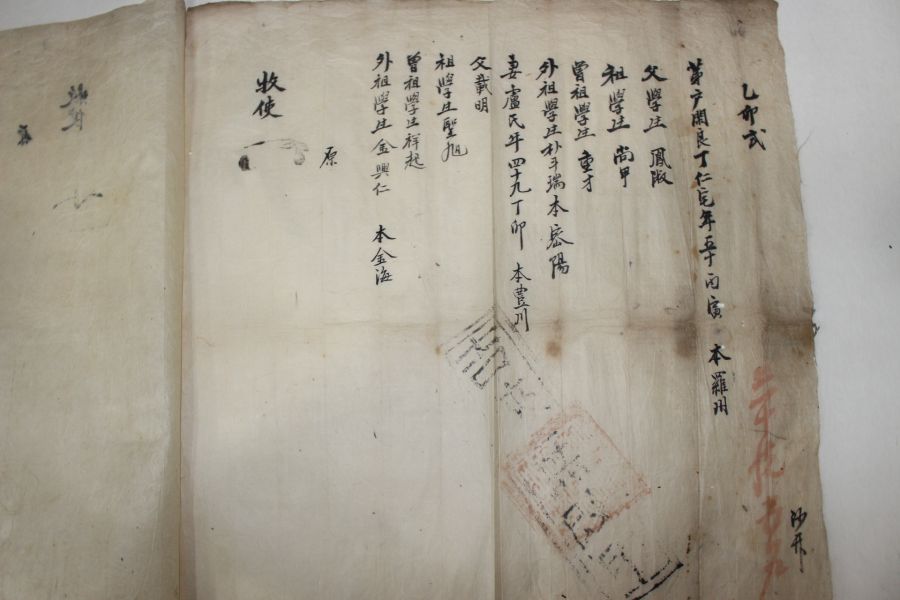 乙卯式
第 戶閑良丁仁宅年五十丙寅 本羅州
父學生 鳳
祖學生 尚甲
曾祖學生 重才
外祖學生朴千瑞本密陽
妻盧氏年四十九丁卯 本豊川
父載明
祖學生聖旭
曾祖學生祥起
外祖學生金興仁 本金海
原
牧使